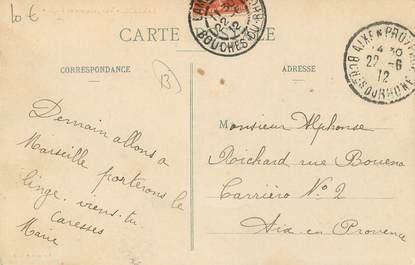 10 €
CARTE
CORRESPONDANCE
ADRESSE
13
BOUCHES-DU-RHÔNE
22
12
AIX-EN-PROVENCE
22-6
12
BCHES DU RHONE
Demain allons a
Marseille porterons le
linge. viens-tu
Caresses
Marie
Monsieur Alphonse
Roichard rue Bouena
Carriéro No 2
Aix-en-Provence